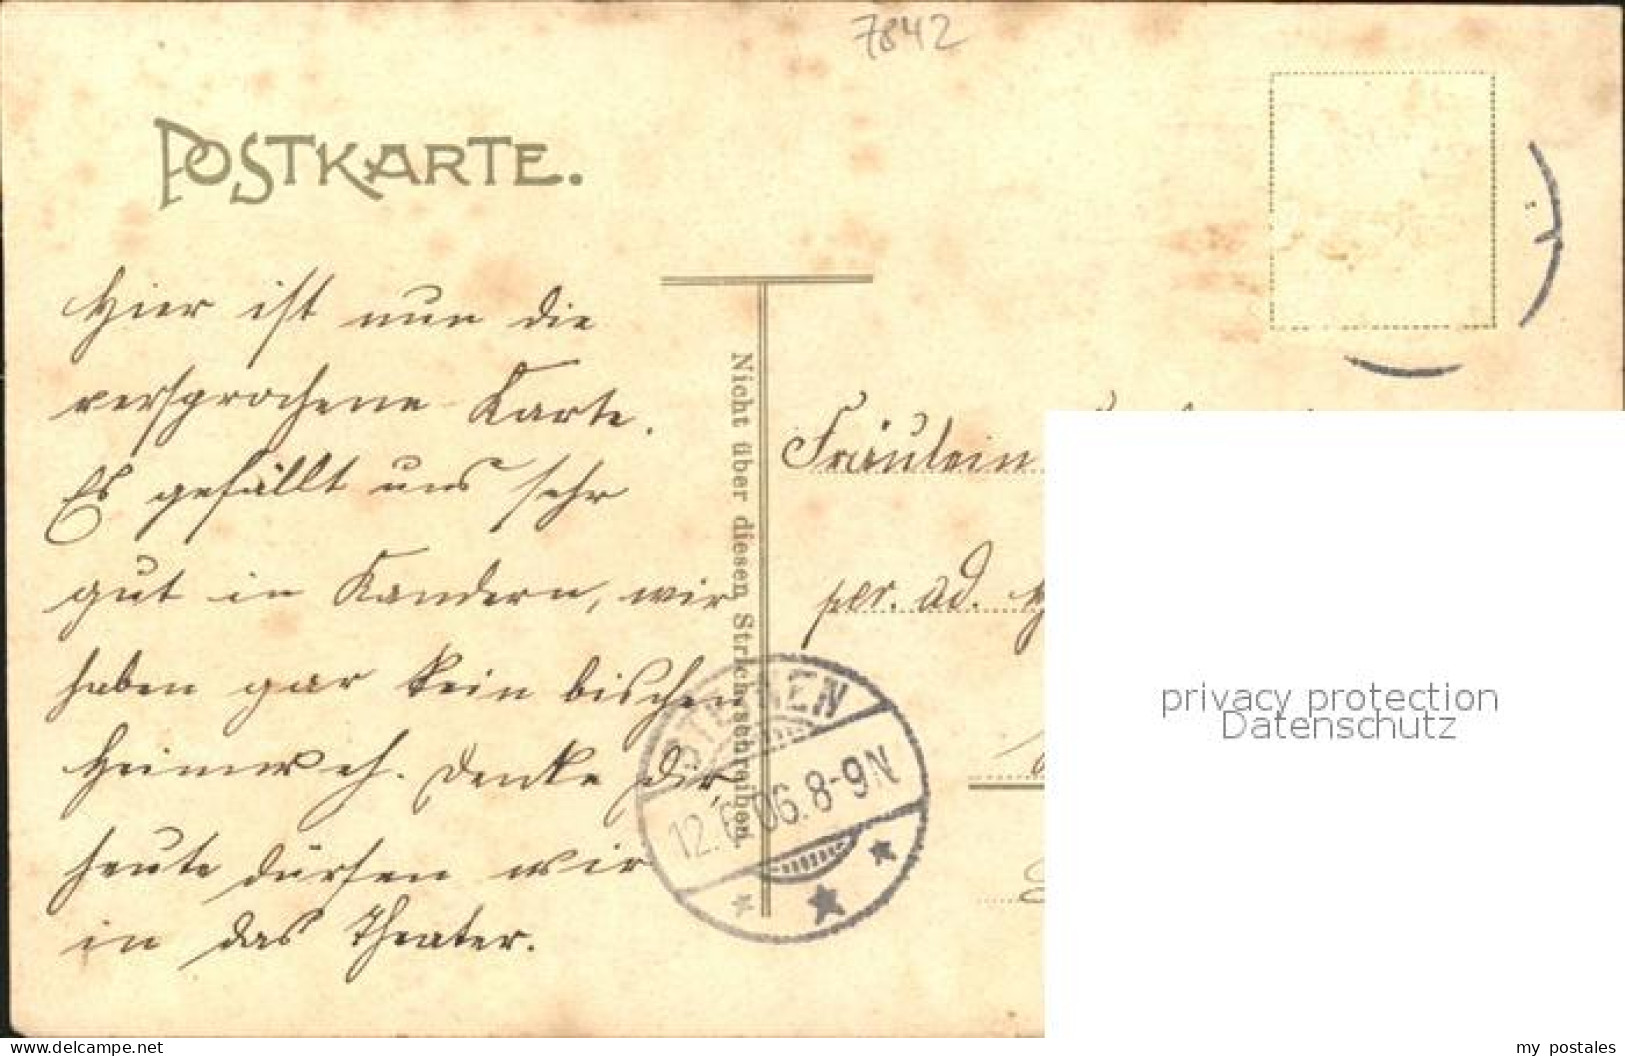 7842
POSTKARTE.
Hier ist nun die
versprochene Karte.
Es gefällt uns sehr
gut in Kandern, wir
haben gar kein bischen
Heimweh. Denke dir,
heute dürfen wir
in das Theater.
Nicht über diesen Strich schreiben.
12.6.06.8-9N
Fräulein
per. ad.
privacy protection
Datenschutz
www.delcampe.net
my_postales